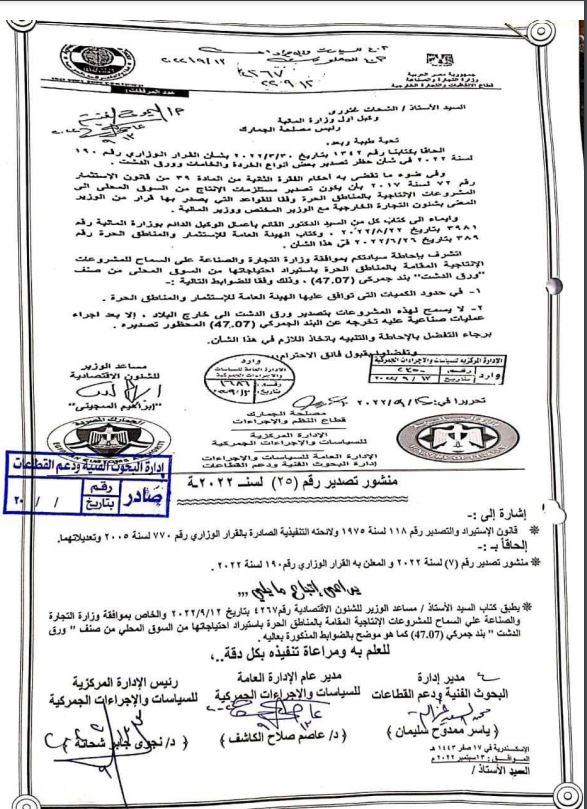 جمهورية مصر العربية
وزارة التجارة والصناعة
قطاع الاتفاقيات والتجارة الخارجية
٤٢٦٧
عدد المرفقات:
السيد الأستاذ / الشحات غتوري
وكيل أول وزارة المالية
رئيس مصلحة الجمارك
تحية طيبة وبعد،
الحاقاً بكتابنا رقم ١٣٤٢ بتاريخ ٢٠٢٢/٣/٣٠ بشأن القرار الوزاري رقم ١٩٠
لسنة ٢٠٢٢ في شأن حظر تصدير بعض أنواع الخردة والخامات وورق الدشت.
وفى ضوء ما تقضى به أحكام الفقرة الثانية من المادة ٣٩ من قانون الاستثمار
رقم ٧٢ لسنة ٢٠١٧ بأن يكون تصدير مستلزمات الإنتاج من السوق المحلى الى
المشروعات الإنتاجية بالمناطق الحرة وفقا للقواعد التي يصدر بها قرار من الوزير
المعنى بشئون التجارة الخارجية مع الوزير المختص ووزير المالية .
وإيماء الى كتاب كل من السيد الدكتور القائم بأعمال الوكيل الدائم بوزارة المالية رقم
٣٩٨١ بتاريخ ٢٠٢٢/٨/٢٢ ، وكتاب الهيئة العامة للإستثمار والمناطق الحرة رقم
٣٨٩ بتاريخ ٢٠٢٢/٦/٢٦ في هذا الشأن .
اتشرف بإحاطة سيادتكم بموافقة وزارة التجارة والصناعة على السماح للمشروعات
الإنتاجية المقامة بالمناطق الحرة باستيراد احتياجاتها من السوق المحلى من صنف
"ورق الدشت" بند جمركي (47.07) ، وذلك وفقا للضوابط التالية :-
١- في حدود الكميات التى توافق عليها الهيئة العامة للإستثمار والمناطق الحرة .
٢- لا يسمح لهذه المشروعات بتصدير ورق الدشت الى خارج البلاد ، إلا بعد اجراء
عمليات صناعية عليه تخرجه عن البند الجمركي (47.07) المحظور تصديره .
برجاء التفضل بالإحاطة والتنبيه باتخاذ اللازم في هذا الشأن.
وتفضلوا بقبول فائق الاحترام،،
مساعد الوزير
للشئون الاقتصادية
"إبراهيم السجيني"
وارد
الإدارة العامة للسياسات
والإجراءات الجمركية
رقم: ١٦٨٦
الإدارة المركزية للسياسات والإجراءات الجمركية
وارد رقم
بتاريخ
مصلحة الجمارك
قطاع النظم والإجراءات
الإدارة المركزية
للسياسات والإجراءات الجمركية
الإدارة العامة للسياسات والإجراءات الجمركية
إدارة البحوث الفنية ودعم القطاعات
إدارة البحوث الفنية ودعم القطاعات
صادر رقم
بتاريخ / / ٢٠
منشور تصدير رقم (٢٥) لسنـــ ٢٠٢٢ـة
إشارة إلى :-
* قانون الإستيراد والتصدير رقم ١١٨ لسنة ١٩٧٥ ولائحته التنفيذية الصادرة بالقرار الوزاري رقم ٧٧٠ لسنة ٢٠٠٥ وتعديلاتهما.
إلحاقاً بـ :-
* منشور تصدير رقم (٧) لسنة ٢٠٢٢ و المعلن به القرار الوزاري رقم ١٩٠ لسنة ٢٠٢٢ .
يراعى إتباع ما يلي ,,,
* يطبق كتاب السيد الأستاذ / مساعد الوزير للشئون الاقتصادية رقم ٤٢٦٧ بتاريخ ٢٠٢٢/٩/١٢ والخاص بموافقة وزارة التجارة
والصناعة علي السماح للمشروعات الإنتاجية المقامة بالمناطق الحرة باستيراد احتياجاتها من السوق المحلي من صنف " ورق
الدشت " بند جمركي (47.07) كما هو موضح بالضوابط المذكورة بعاليه .
للعلم به ومراعاة تنفيذه بكل دقة..،
مدير إدارة
البحوث الفنية ودعم القطاعات
( ياسر ممدوح سليمان )
مدير عام الإدارة العامة
للسياسات والإجراءات الجمركية
( د/ عاصم صلاح الكاشف )
رئيس الإدارة المركزية
للسياسات والإجراءات الجمركية
( د/ نجوى جابر شحاتة )
الإسكندرية في ١٧ صفر ١٤٤٣ هـ
الموافق : ١٣ سبتمبر ٢٠٢٢ م
السيد الأستاذ /